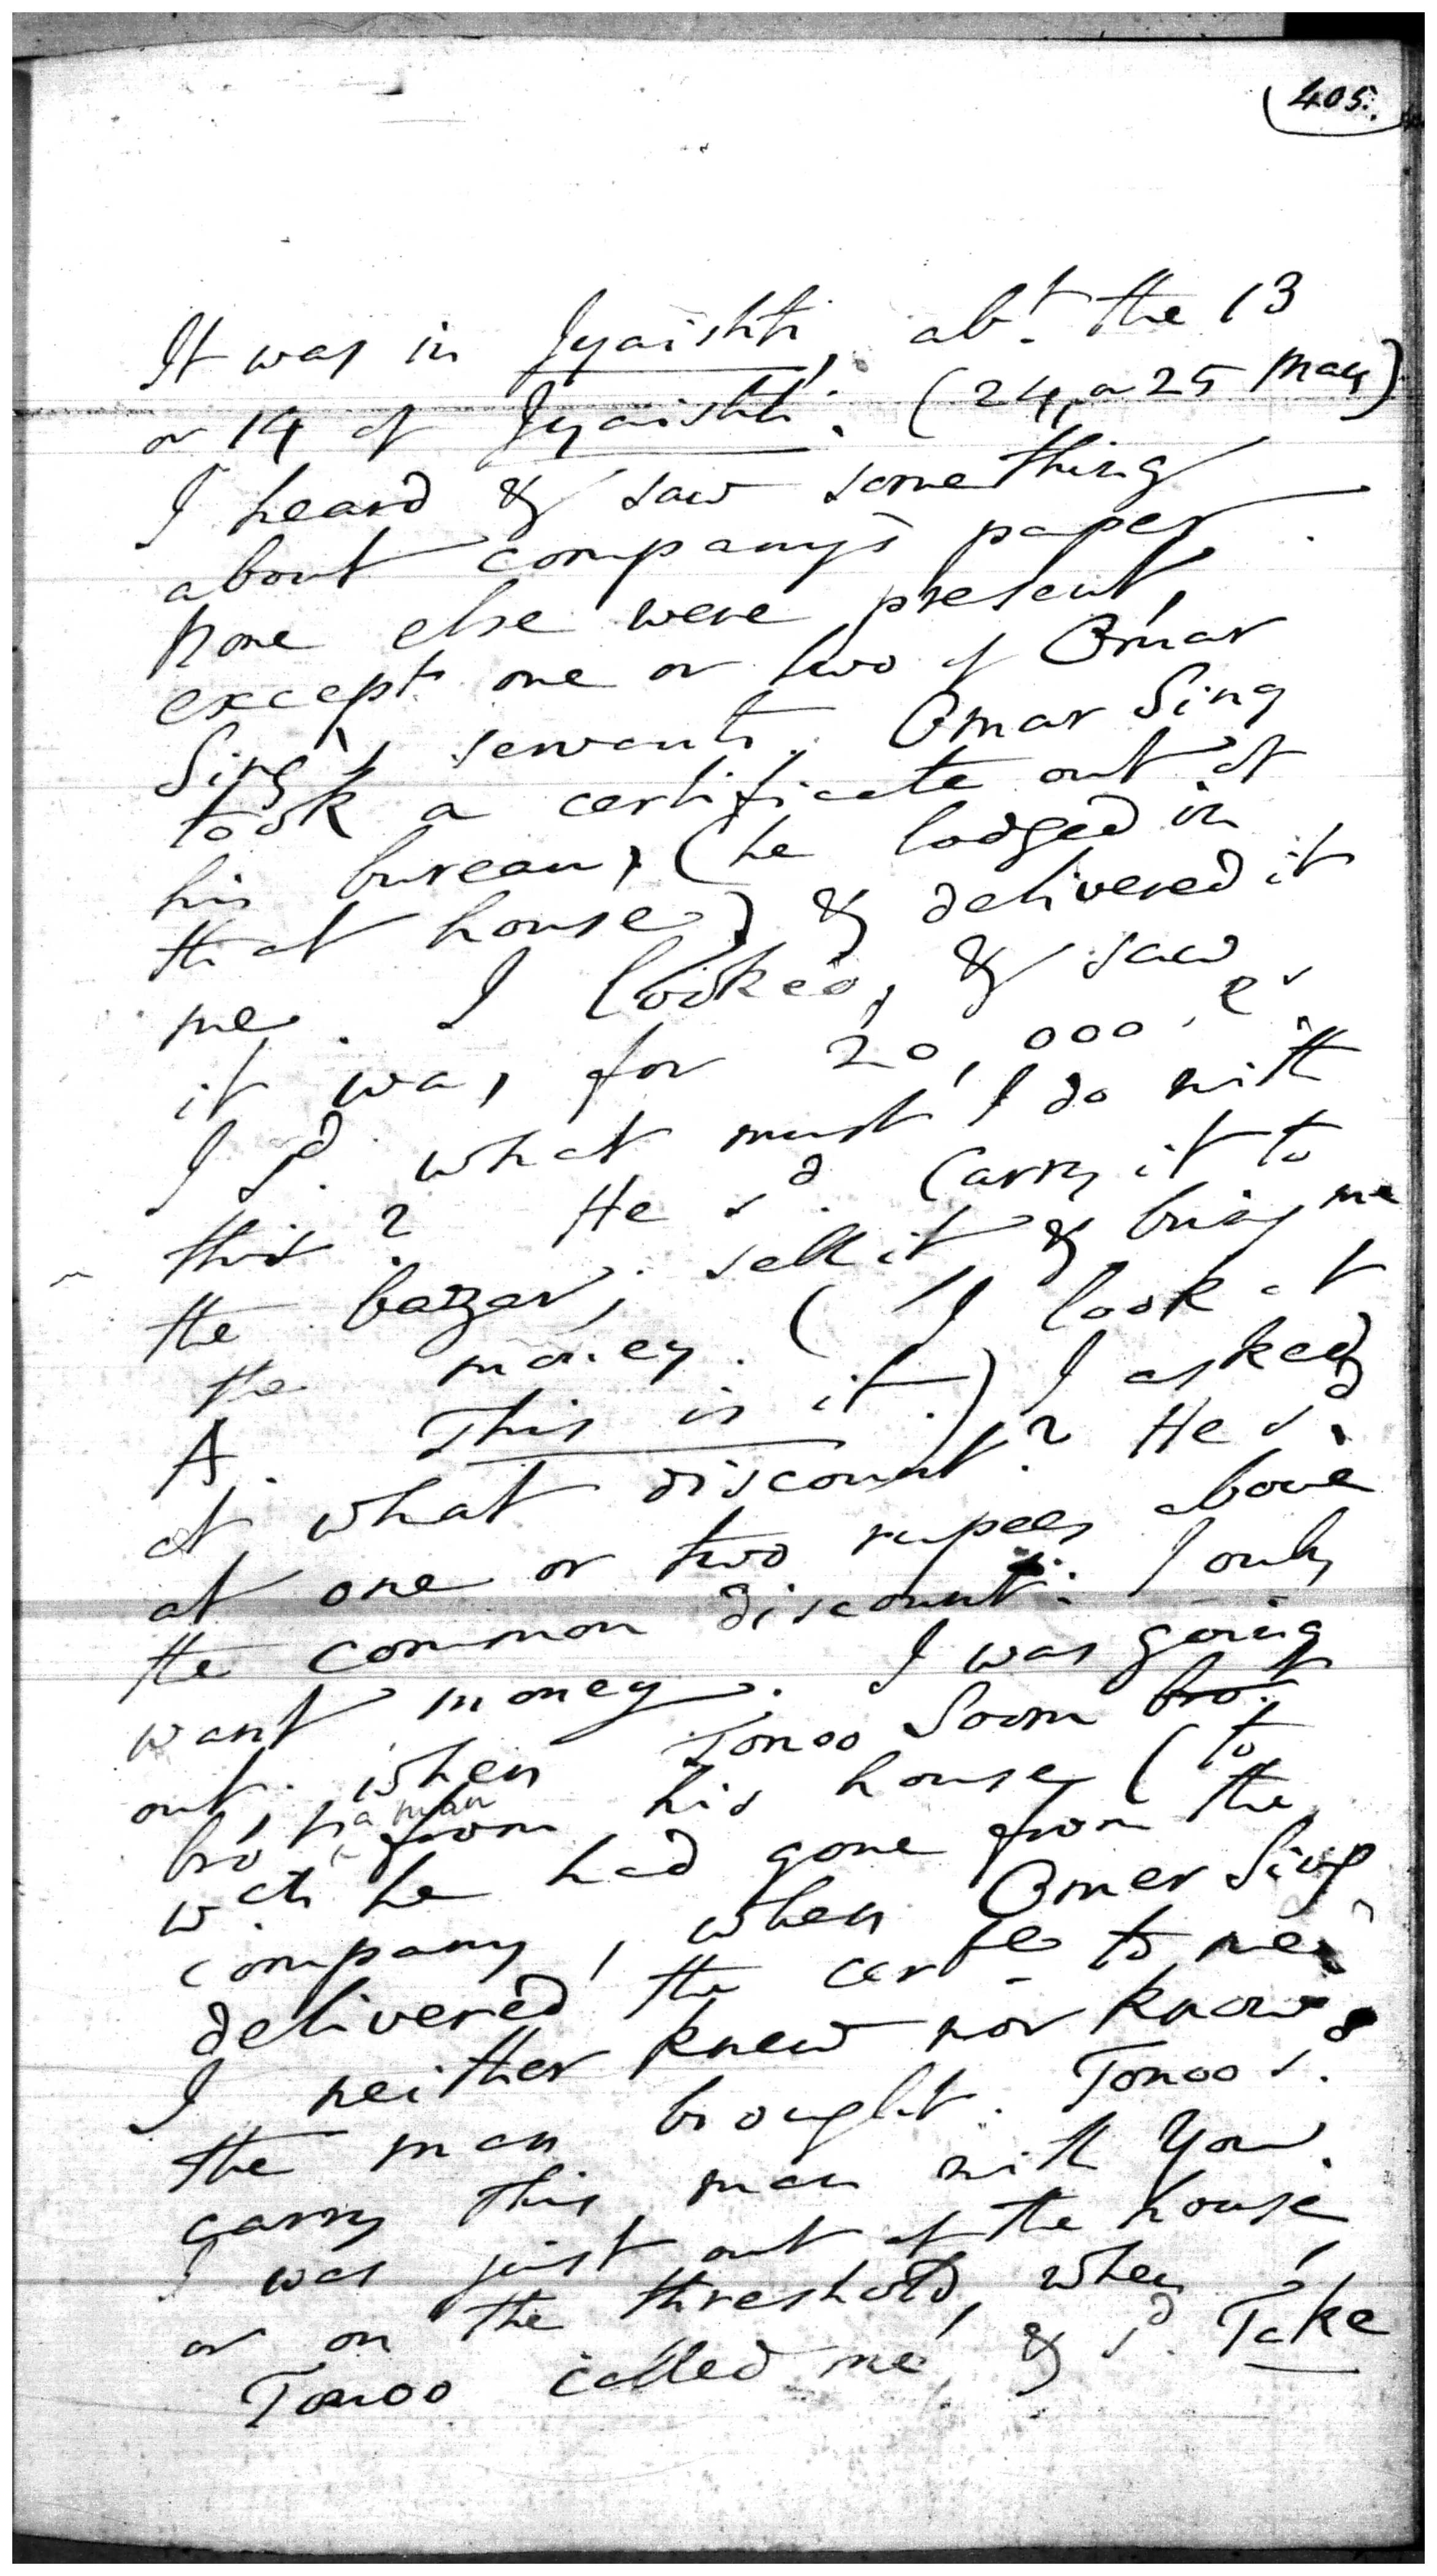 405.
It was in Jyaishti, abt. the 13
or 14 of Jyaishti. (24, or 25 May)
I heard & saw something
about company's paper.
None else were present,
except one or two of Omar
Sing's servants. Omar Sing
took a certificate out of
his bureau, (he lodged in
that house) & delivered it
me. I looked, & saw
it was for 20,000 Rs
I sd. what must I do with
this? He sd. Carry it to
the bazar, sell it & bring me
the money. (I look at
A. This is it.) I asked
at what discount? He sd.
at one or two rupees above
the common discount. I only
want money. I was going
out when Tonoo Soom brot.
brot a man from his house (to
wch. he had gone from the
company, when Omer Sing
delivered the certe to me)
I neither knew nor know
the man brought. Tonoo sd.
carry this man with you.
I was just out of the house
or on the threshold, when
Tonoo called me, & sd. Take